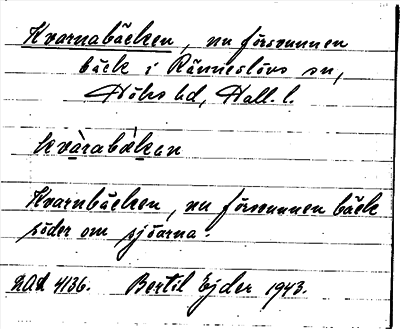 Kvarnabäcken, nu försvunnen
bäck i Ränneslövs sn,
Höks hd, Hall. l.
kvàrabækan
Kvarnbäcken, nu försvunnen bäck
söder om sjöarna.
4136. Bertil Ejder 1943.